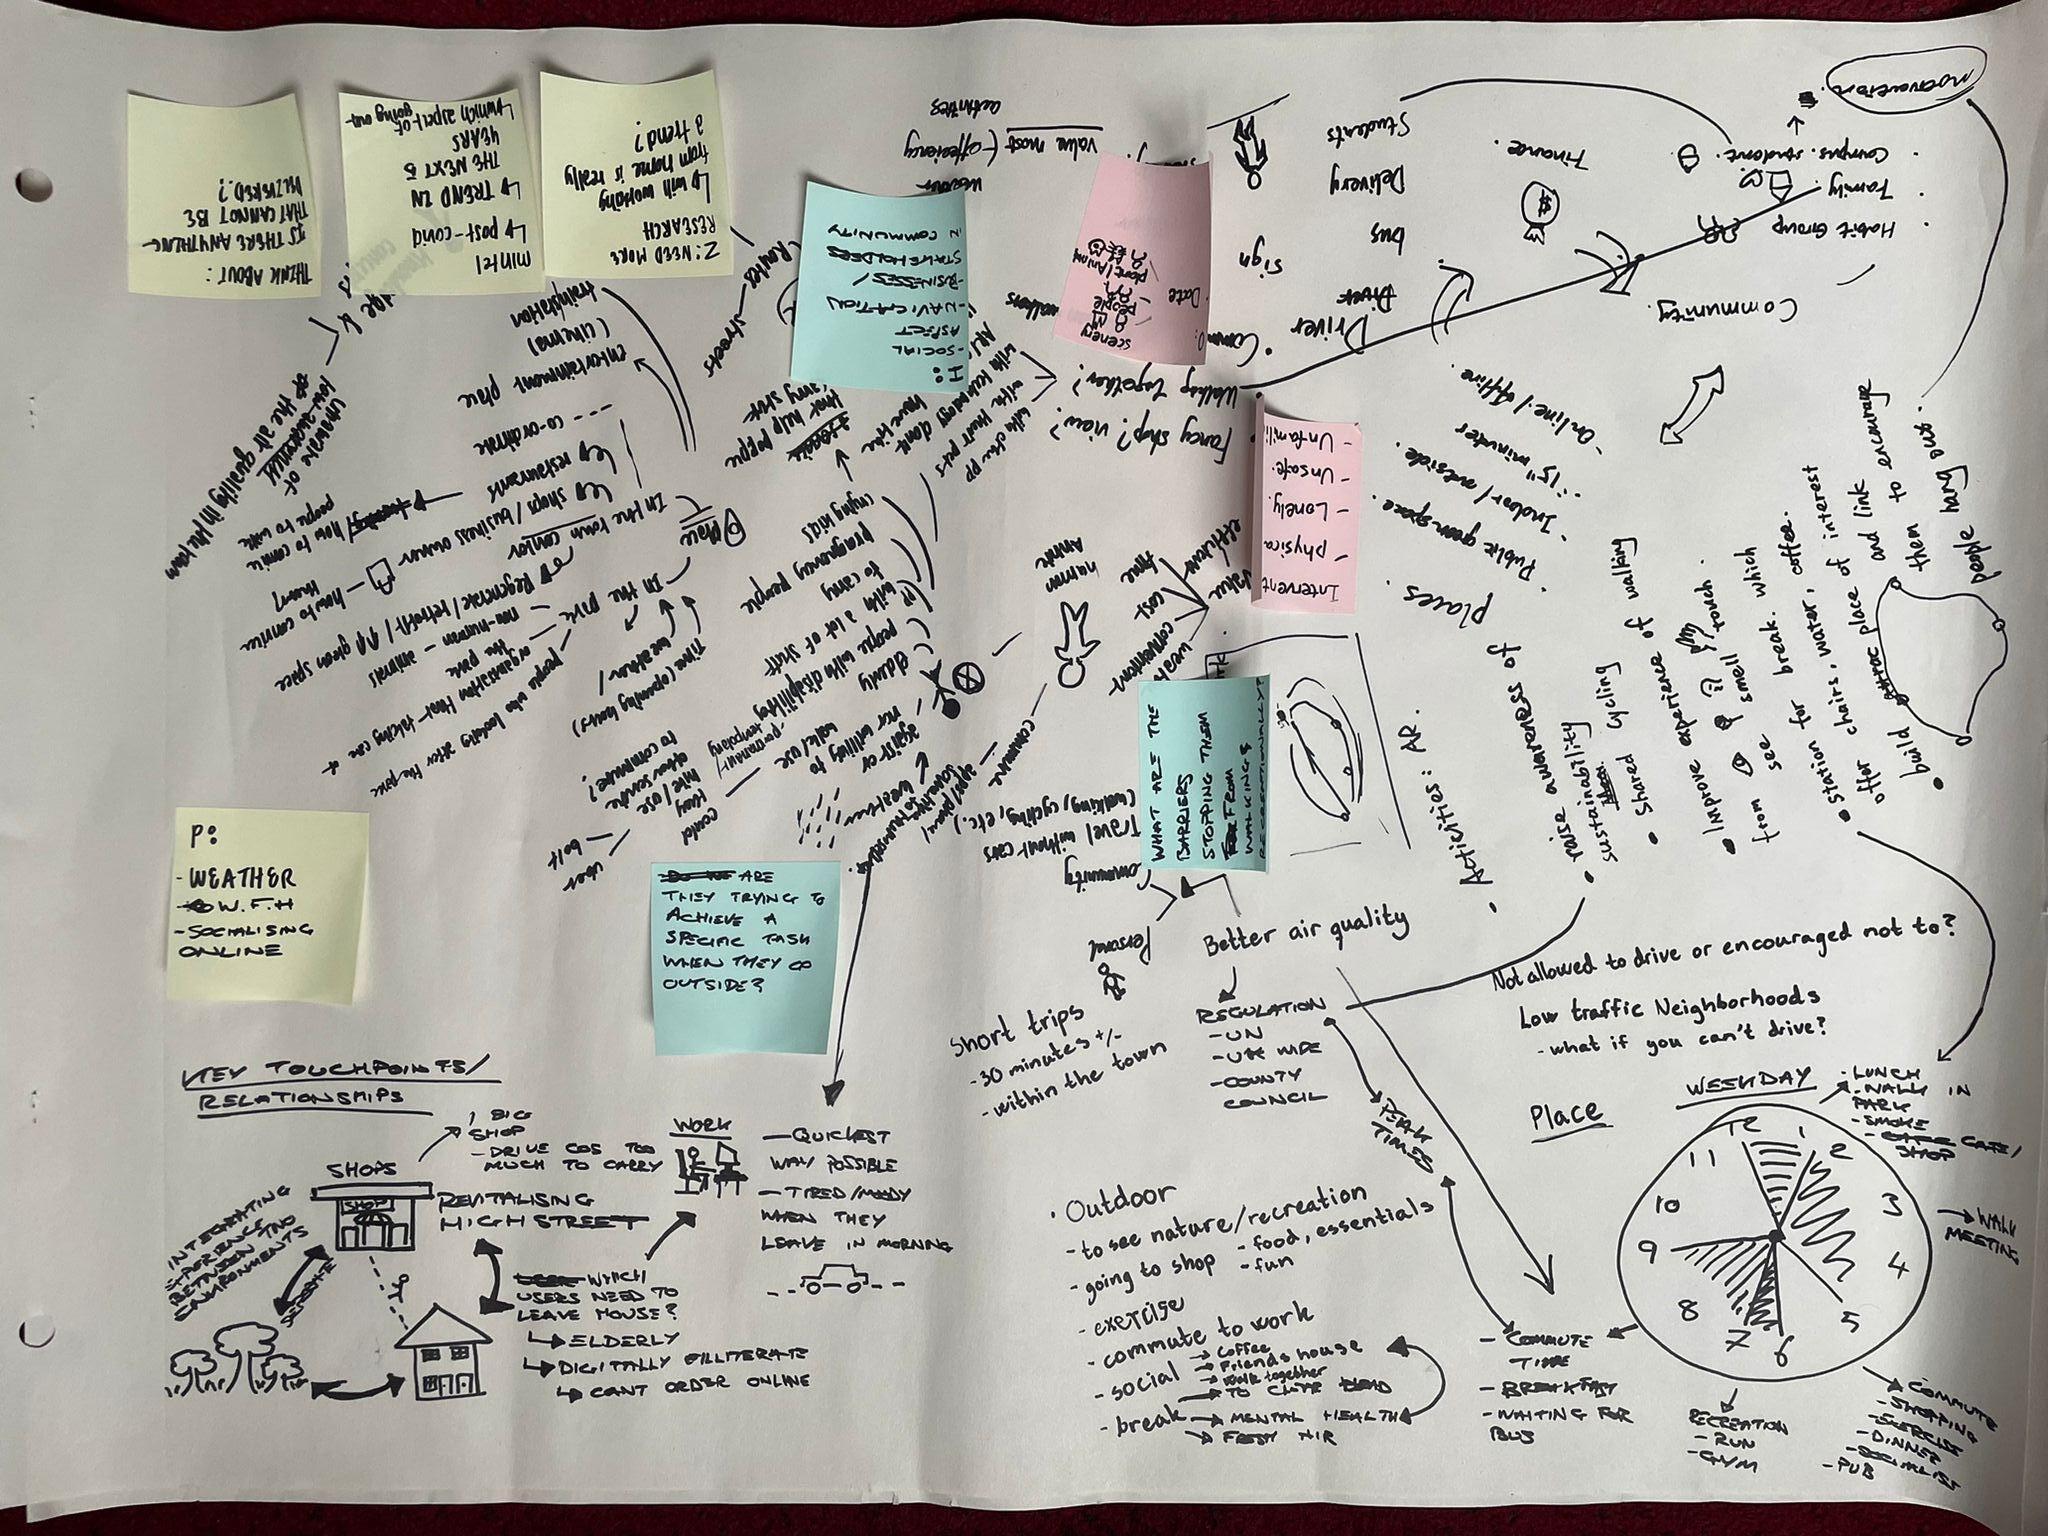 THINK ABOUT:
IS THERE ANYTHING
THAT CANNOT BE
DELIVERED?
mintel
↳ post-covid
↳ TREND IN
THE NEXT 5
YEARS
↳ which aspect of
going out
Z: NEED MORE
RESEARCH
↳ will working
from home is really
a trend?
I:
- SOCIAL
ASPECT
- NAVIGATION
- BUSINESSES/
STAKEHOLDERS
IN COMMUNITY
scenery
people
plant/Animal
Date
Intervent
- physica
- Lonely.
- Unsafe.
- Unfamili
WHAT ARE THE
BARRIERS
STOPPING THEM
FROM
WALKING
RECREATIONALLY?
ARE
THEY TRYING TO
ACHIEVE A
SPECIFIC TASK
WHEN THEY GO
OUTSIDE?
P:
- WEATHER
- W.F.H
- SOCIALISING
ONLINE
value most (- effeciency
activities
Routes
streets
trainstation
(cinema)
entertainment place
co-ordinate
Leg restaurants
Leg shops / business owner
how to convince
them?
how to convie
people to walk
In the town center
Place
Regenerate / retrofit / green space
In the
park
non-human - animals
organisation that taking care of
the park
people who looking after the park
Time (opening hours)
weather /
unaware of
the air quality in the room
that help people
carry stuff
crying kids
pragnancy people
PP with a lot of stuff
to carry
people with disability
- permanant
- tempolary
Elderly
against or
not willing to
walk / use
could
they / use
other service
to commute?
uber
bolt
Walking Together?
Fancy shop? view?
walkers
cost
time
convenient
human
Community
Travel without cars
(walking, cycling, etc.)
Personal
Students
Delivery
bus
sign
Driver
Finance.
$
motivation
Campus. student.
Family
Habit Group
Community.
places.
Public green space.
- Indoor / outside.
- "15" minutes
- Online / offline.
Activities: AR.
• raise awareness of
sustainability
• shared cycling
• shared experience of walking
• Improve experience
from see smell touch.
• station for break. which
offer chairs, water, coffee.
• build place of interest
place and link
them to encourage
people hang out.
Better air quality
REGULATION
- UN
- UK WIDE
- COUNTY
COUNCIL
PEAK
TIMES
Not allowed to drive or encouraged not to?
Low traffic Neighborhoods
- what if you can't drive?
Short trips
- 30 minutes +/-
- within the town
KEY TOUCHPOINTS/
RELATIONSHIPS
1 BIG
SHOP
- DRIVE COS TOO
MUCH TO CARRY
SHOPS
SHOP
REVITALISING
HIGH STREET
INTEGRATING
EXPERIENCE
BETWEEN TWO
ENVIRONMENTS
WORK
- QUICKEST
WAY POSSIBLE
- TIRED/MOODY
WHEN THEY
LEAVE IN MORNING
WHICH
USERS NEED TO
LEAVE HOUSE?
↳ ELDERLY
↳ DIGITALLY ILLITERATE
↳ CANT ORDER ONLINE
• Outdoor
- to see nature/recreation
- going to shop - food, essentials
- fun
- exercise
- commute to work
- social → Coffee
→ Friends house
→ walk together
- break → TO CLEAR HEAD
→ MENTAL HEALTH
→ FRESH AIR
Place
WEEKDAY
12 1 2 3 4 5 6 7 8 9 10 11
- LUNCH
- WALK IN
PARK
- SMOKE
- CAFE/
SHOP
→ WALK
MEETING
- COMMUTE
TIME
- BREAKFAST
- WAITING FOR
BUS
RECREATION
- RUN
- GYM
COMMUTE
- SHOPPING
- EXERCISE
- DINNER
- SOCIALISE
- PUB